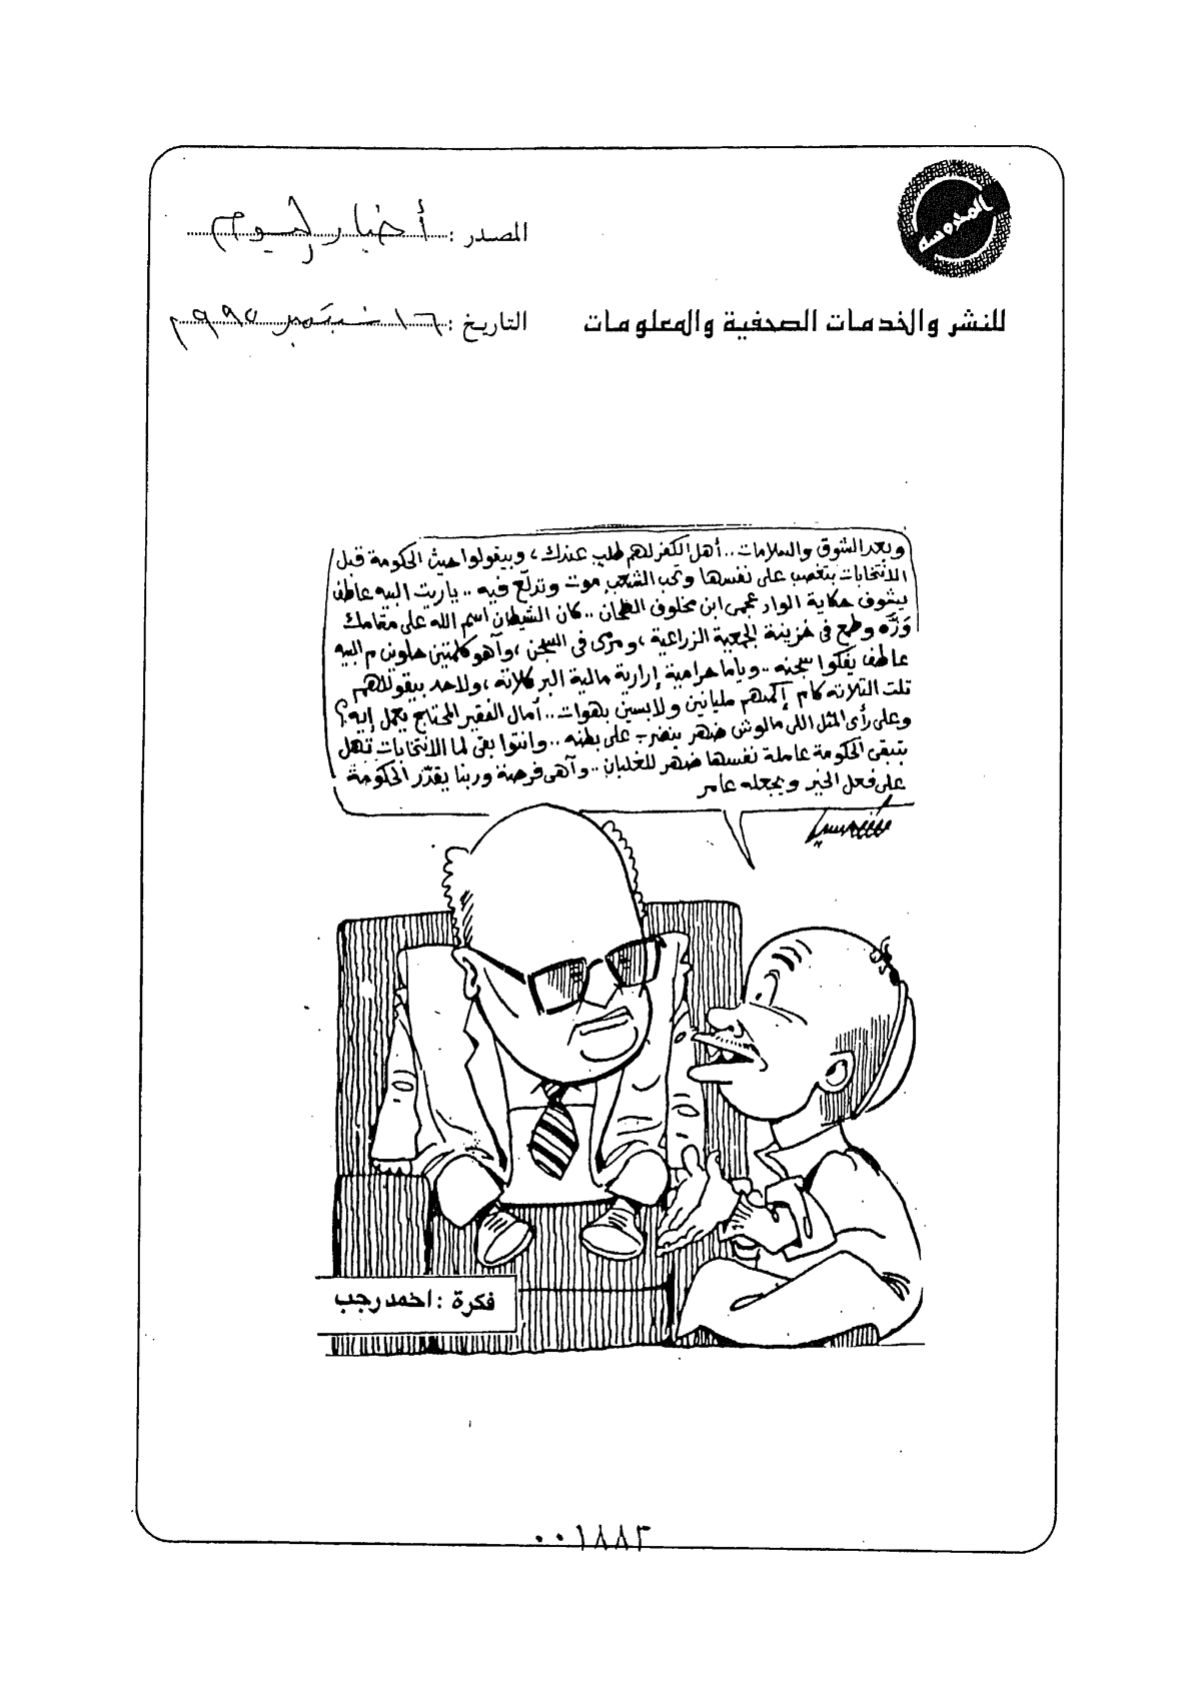 المحروسة
المصدر : أخبار اليوم
للنشر والخدمات الصحفية والمعلومات
التاريخ : ١٦ سبتمبر ١٩٩٥م
وبعد الشوق والسلامات .. أهل الكفر لهم طلب عندك ، وبيقولوا حيث الحكومة قبل
الانتخابات بتغصب على نفسها وتحب الشعب موت وتدلّع فيه .. ياريت البيه عاطف
يشوف حكاية الواد عجمى ابن مخلوف الطحان .. كان الشيطان اسم الله على مقامك
وَزّه وطمع فى خزينة الجمعية الزراعية ، ومرمى فى السجن ، وآهو كلمتين حلوين م البيه
عاطف يفكوا سجنه .. وياما حرامية إرارية مالية البر كلاته ، ولاحد بيقوللهم
تلت التلاته كام إكمنهم مليانين ولابسين بهوات .. أمال الفقير المحتاج يعمل إيه ؟
وعلى رأى المثل اللى مالوش ضهر ينضرب على بطنه .. وانتوا بقى لما الانتخابات تهل
بتبقى الحكومة عاملة نفسها ضهر للغلبان .. وآهى فرصة وربنا يقدّر الحكومة
على فعل الخير ويجعله عامر
فكرة : احمد رجب
٠٠١٨٨٢